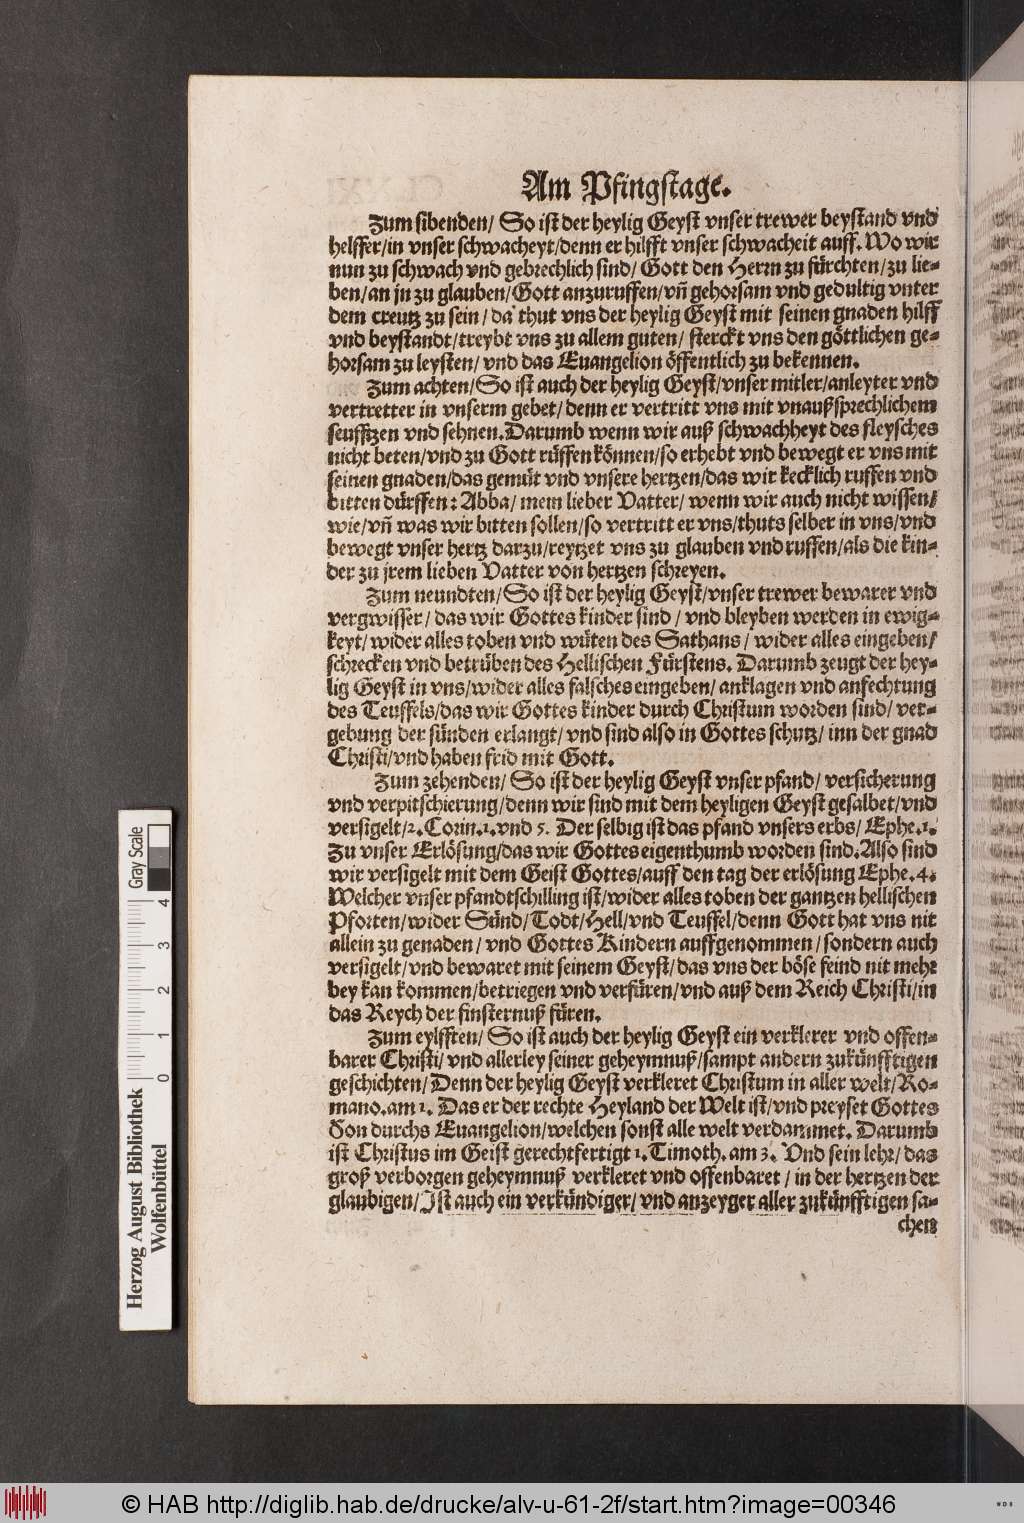 Am Pfingstage.
Zum sibenden/ So ist der heylig Geyst vnser trewer beystand vnd
helffer/in vnser schwacheyt/denn er hilfft vnser schwacheit auff. Wo wir
nun zu schwach vnd gebrechlich sind/ Gott den Herrn zu fürchten/zu lie-
ben/an jn zu glauben/Gott anzuruffen/vñ gehorsam vnd gedultig vnter
dem creutz zu sein/ da thut vns der heylig Geyst mit seinen gnaden hilff
vnd beystandt/treybt vns zu allem guten/ sterckt vns den göttlichen ge-
horsam zu leysten/ vnd das Euangelion öffentlich zu bekennen.
Zum achten/So ist auch der heylig Geyst/vnser mitler/anleyter vnd
vertretter in vnserm gebet/denn er vertritt vns mit vnaußsprechlichem
seufftzen vnd sehnen. Darumb wenn wir auß schwachheyt des fleysches
nicht beten/vnd zu Gott rüffen können/so erhebt vnd bewegt er vns mit
seinen gnaden/das gemüt vnd vnsere hertzen/das wir kecklich ruffen vnd
bitten dürffen: Abba/ mein lieber Vatter/ wenn wir auch nicht wissen/
wie/vñ was wir bitten sollen/so vertritt er vns/thuts selber in vns/vnd
bewegt vnser hertz darzu/reytzet vns zu glauben vnd ruffen/als die kin-
der zu jrem lieben Vatter von hertzen schreyen.
Zum neundten/ So ist der heylig Geyst/vnser trewer bewarer vnd
vergwisser/ das wir Gottes kinder sind/ vnd bleyben werden in ewig-
keyt/ wider alles toben vnd wüten des Sathans/ wider alles eingeben/
schrecken vnd betrüben des Hellischen Fürstens. Darumb zeugt der hey-
lig Geyst in vns/wider alles falsches eingeben/ anklagen vnd anfechtung
des Teuffels/das wir Gottes kinder durch Christum worden sind/ ver-
gebung der sünden erlangt/ vnd sind also in Gottes schutz/ inn der gnad
Christi/vnd haben frid mit Gott.
Zum zehenden/ So ist der heylig Geyst vnser pfand/ versicherung
vnd verpitschierung/denn wir sind mit dem heyligen Geyst gesalbet/vnd
versigelt/2. Corin.1. vnd 5. Der selbig ist das pfand vnsers erbs/ Ephe.1.
Zu vnser Erlösung/das wir Gottes eigenthumb worden sind. Also sind
wir versigelt mit dem Geist Gottes/auff den tag der erlösung Ephe. 4.
Welcher vnser pfandtschilling ist/wider alles toben der gantzen hellischen
Pforten/wider Sünd/Todt/Hell/vnd Teuffel/denn Gott hat vns nit
allein zu genaden/ vnd Gottes Kindern auffgenommen/ sondern auch
versigelt/vnd bewaret mit seinem Geyst/das vns der böse feind nit mehr
bey kan kommen/betriegen vnd verfüren/vnd auß dem Reich Christi/in
das Reych der finsternuß füren.
Zum eylfften/ So ist auch der heylig Geyst ein verklerer vnd offen-
barer Christi/ vnd allerley seiner geheymnuß/sampt andern zukünfftigen
geschichten/ Denn der heylig Geyst verkleret Christum in aller welt/Ro-
mano. am 1. Das er der rechte Heyland der Welt ist/vnd preyset Gottes
Son durchs Euangelion/welchen sonst alle welt verdammet. Darumb
ist Christus im Geist gerechtfertigt 1. Timoth. am 3. Vnd sein lehr/das
groß verborgen geheymnuß verkleret vnd offenbaret/ in der hertzen der
glaubigen/ Ist auch ein verkündiger/ vnd anzeyger aller zukünfftigen sa-
chen
Herzog August Bibliothek
Wolfenbüttel
0 1 2 3 4
Gray Scale
© HAB http://diglib.hab.de/drucke/alv-u-61-2f/start.htm?image=00346